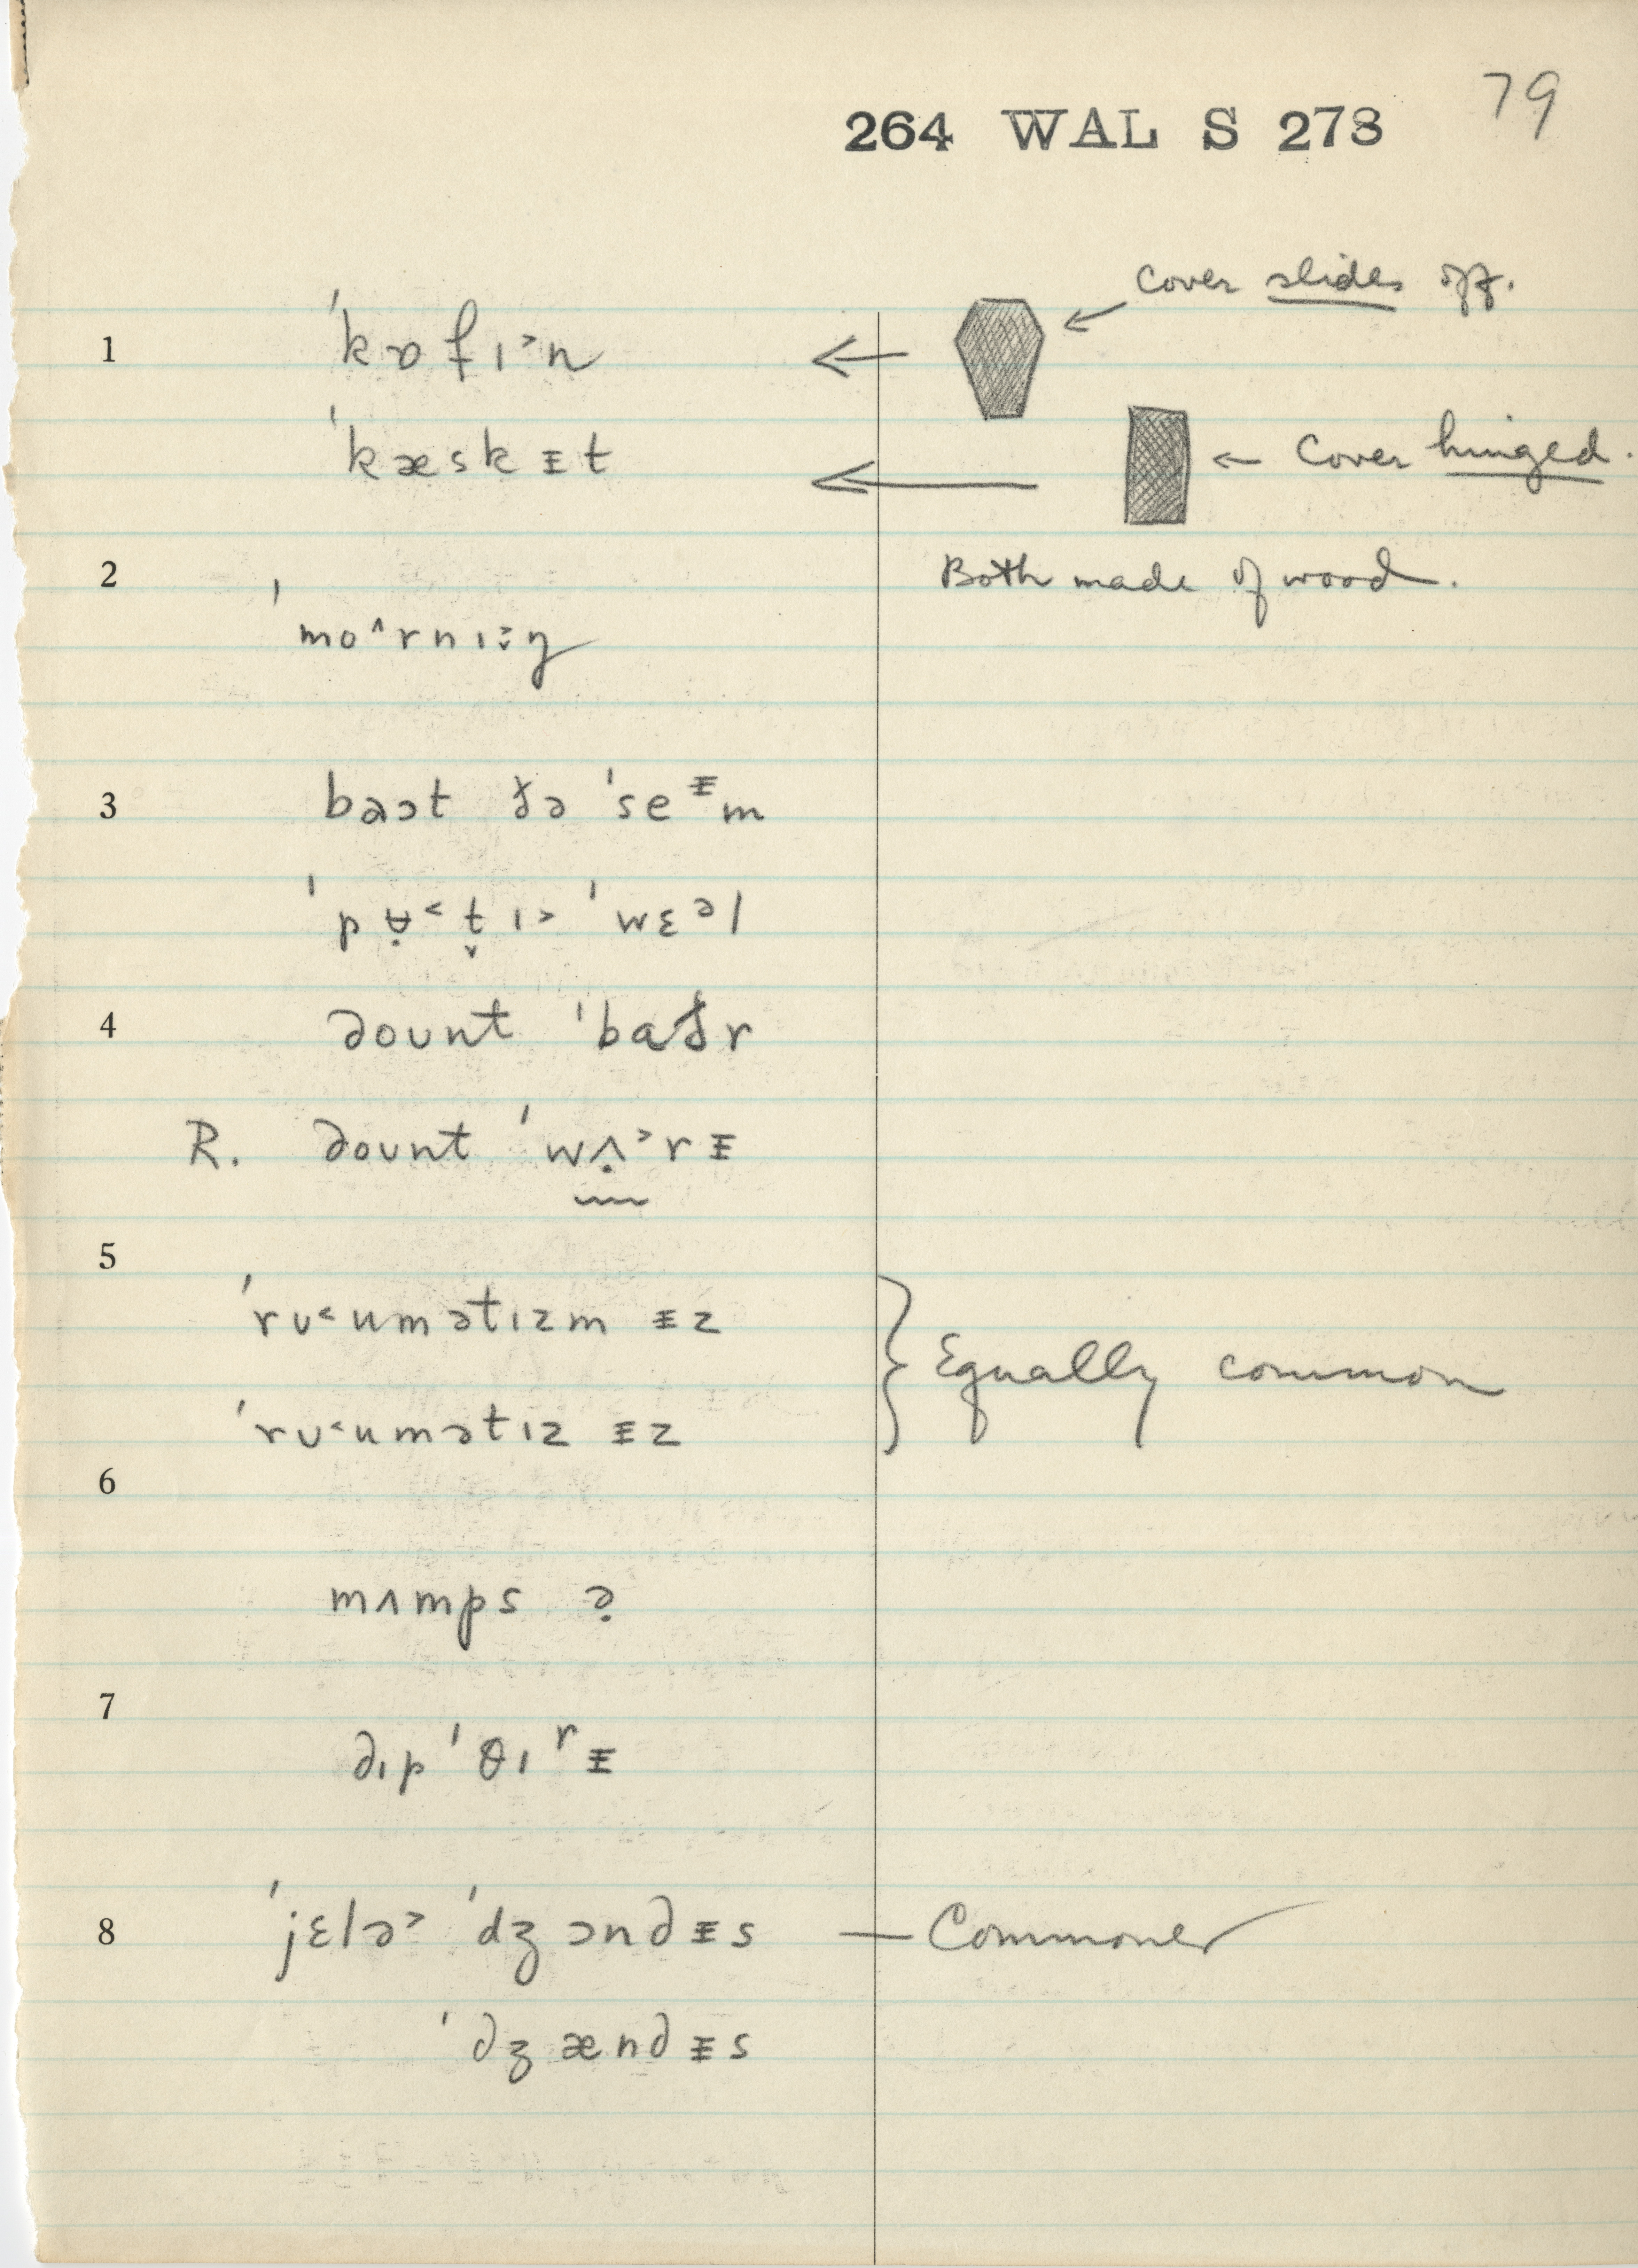 79
264 WAL S 273
cover slides off.
1 ˈkɒfɪ˃n ←
←
ˈkæskᵻt ← ← Cover hinged.
2 Both made of wood.
ˈmo^rnɪ˃̬ŋ
3 baɔt ðə ˈseᵻm
ˈpɐ̣˂t̬ɪ˃ ˈwɛəl
4 dount ˈbaðr
R. dount ˈwʌ̣˃rᵻ
5
ˈrʊ˂umətɪzm ᵻz } Equally common
ˈrʊ˂umətɪz ᵻz
6
mʌmps ?
7
dɪpˈθɪʳᵻ
8 ˈjɛlə˃ ˈdʒɔndᵻs — Commoner
ˈdʒændᵻs